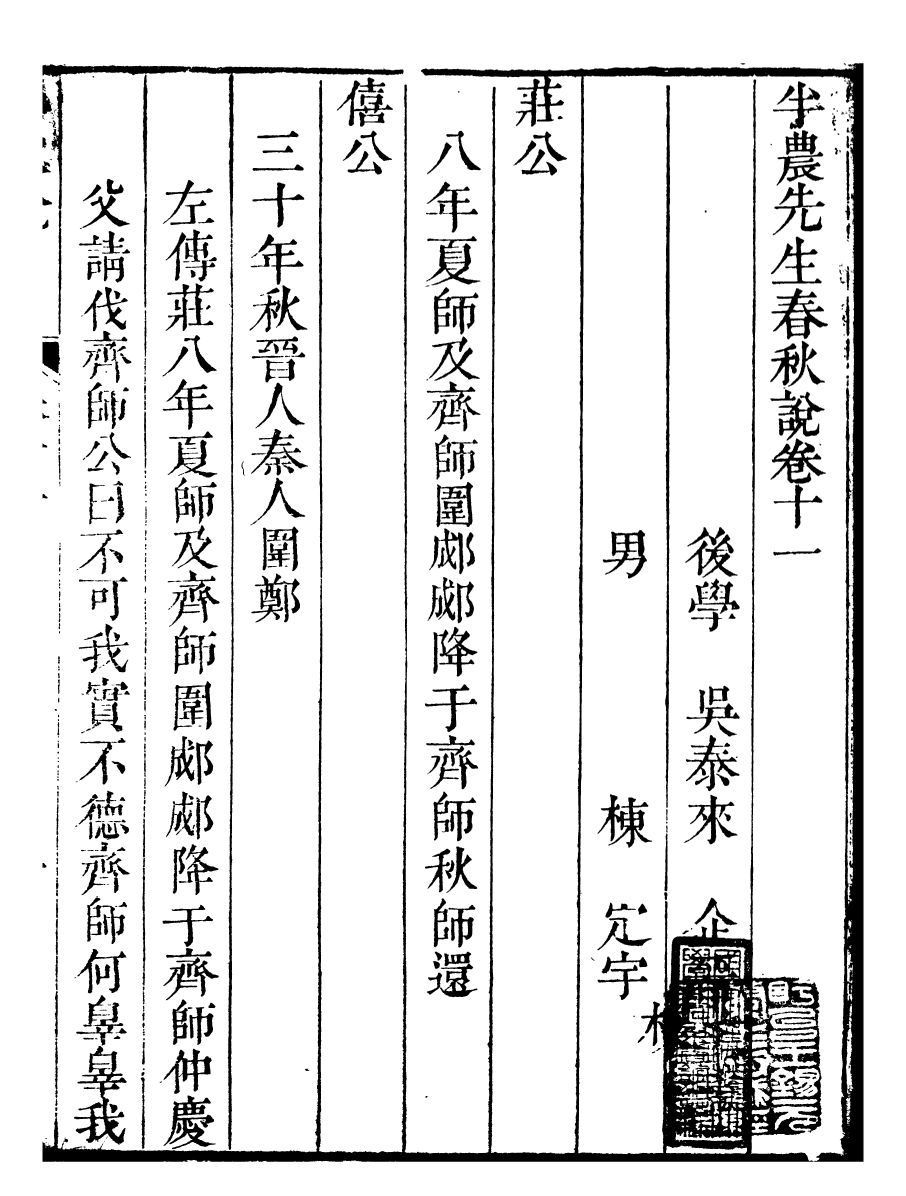 半農先生春秋說卷十一
後學 吳泰來 企
男 棟 定宇
莊公
八年夏師及齊師圍郕郕降于齊師秋師還
僖公
三十年秋晉人秦人圍鄭
左傳莊八年夏師及齊師圍郕郕降于齊師仲慶
父請伐齊師公曰不可我實不德齊師何辠辠我